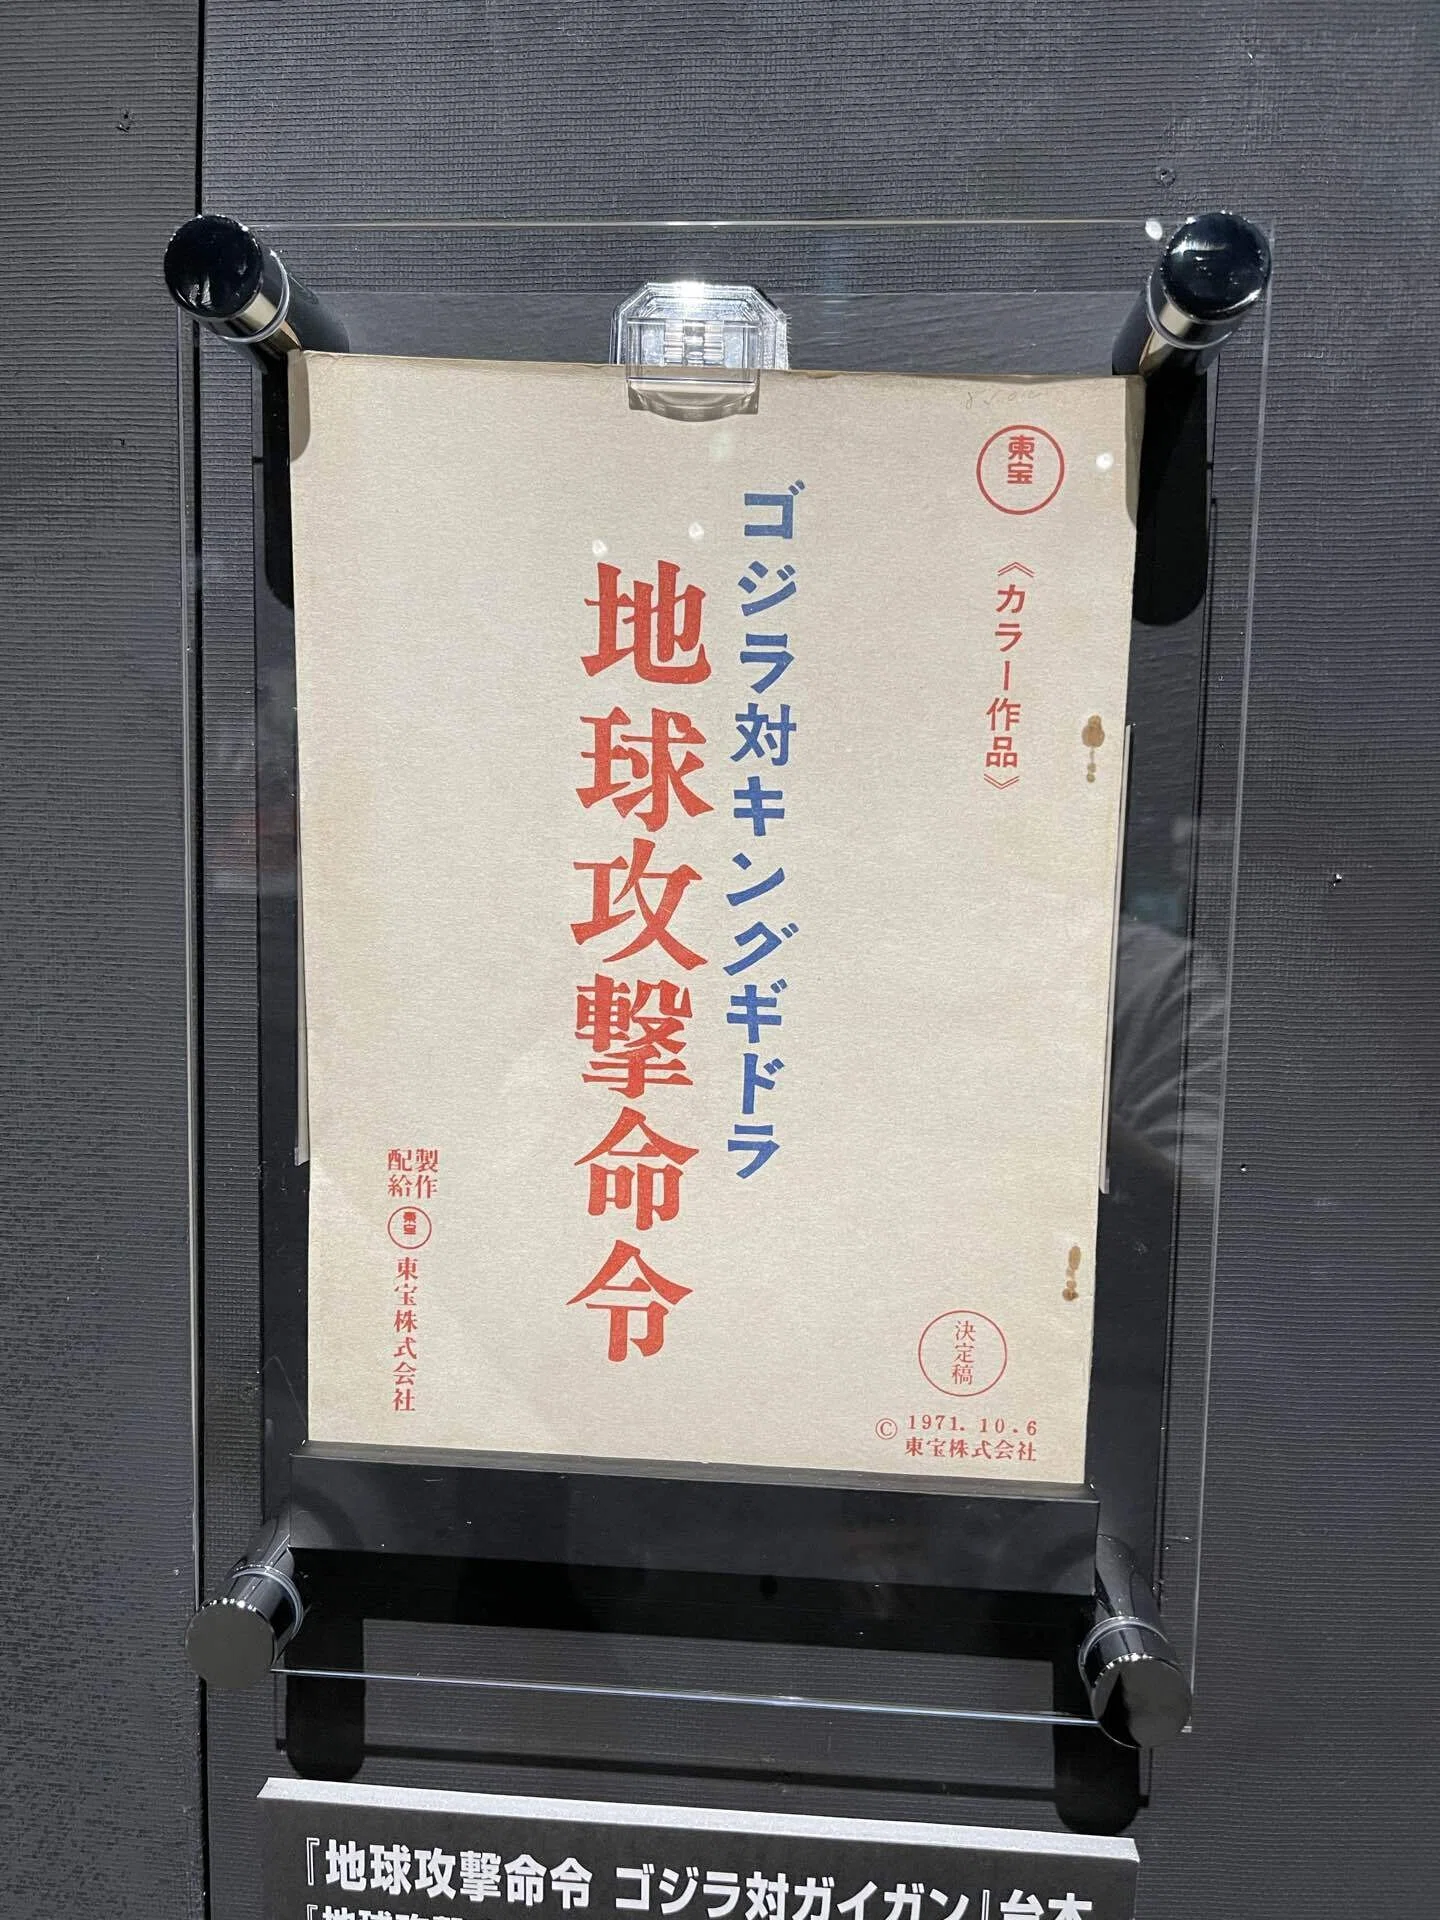 東宝
《カラー作品》
ゴジラ対キングギドラ
地球攻撃命令
製作
配給
東宝
東宝株式会社
決定稿
© 1971. 10. 6
東宝株式会社
『地球攻撃命令 ゴジラ対ガイガン』台本
『地球攻撃